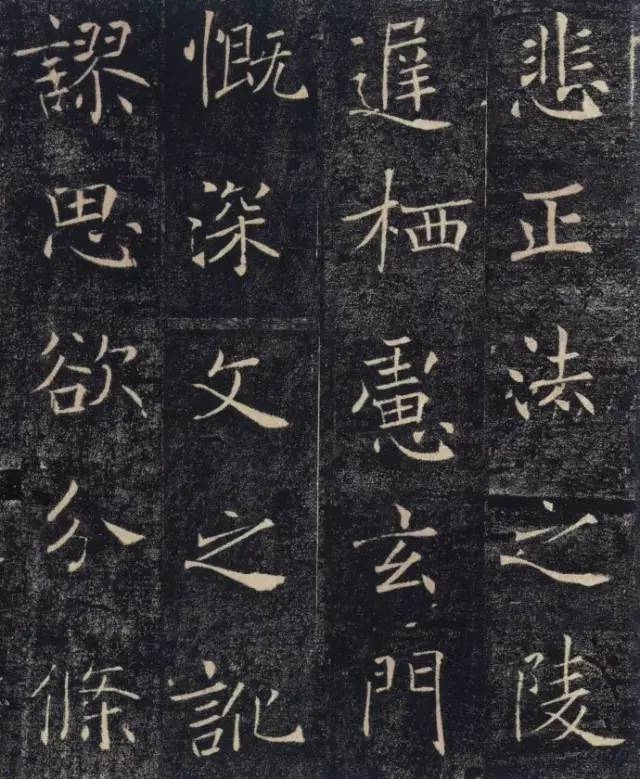 悲正法之陵
遅栖慮玄門
慨深文之訛
謬思欲分條